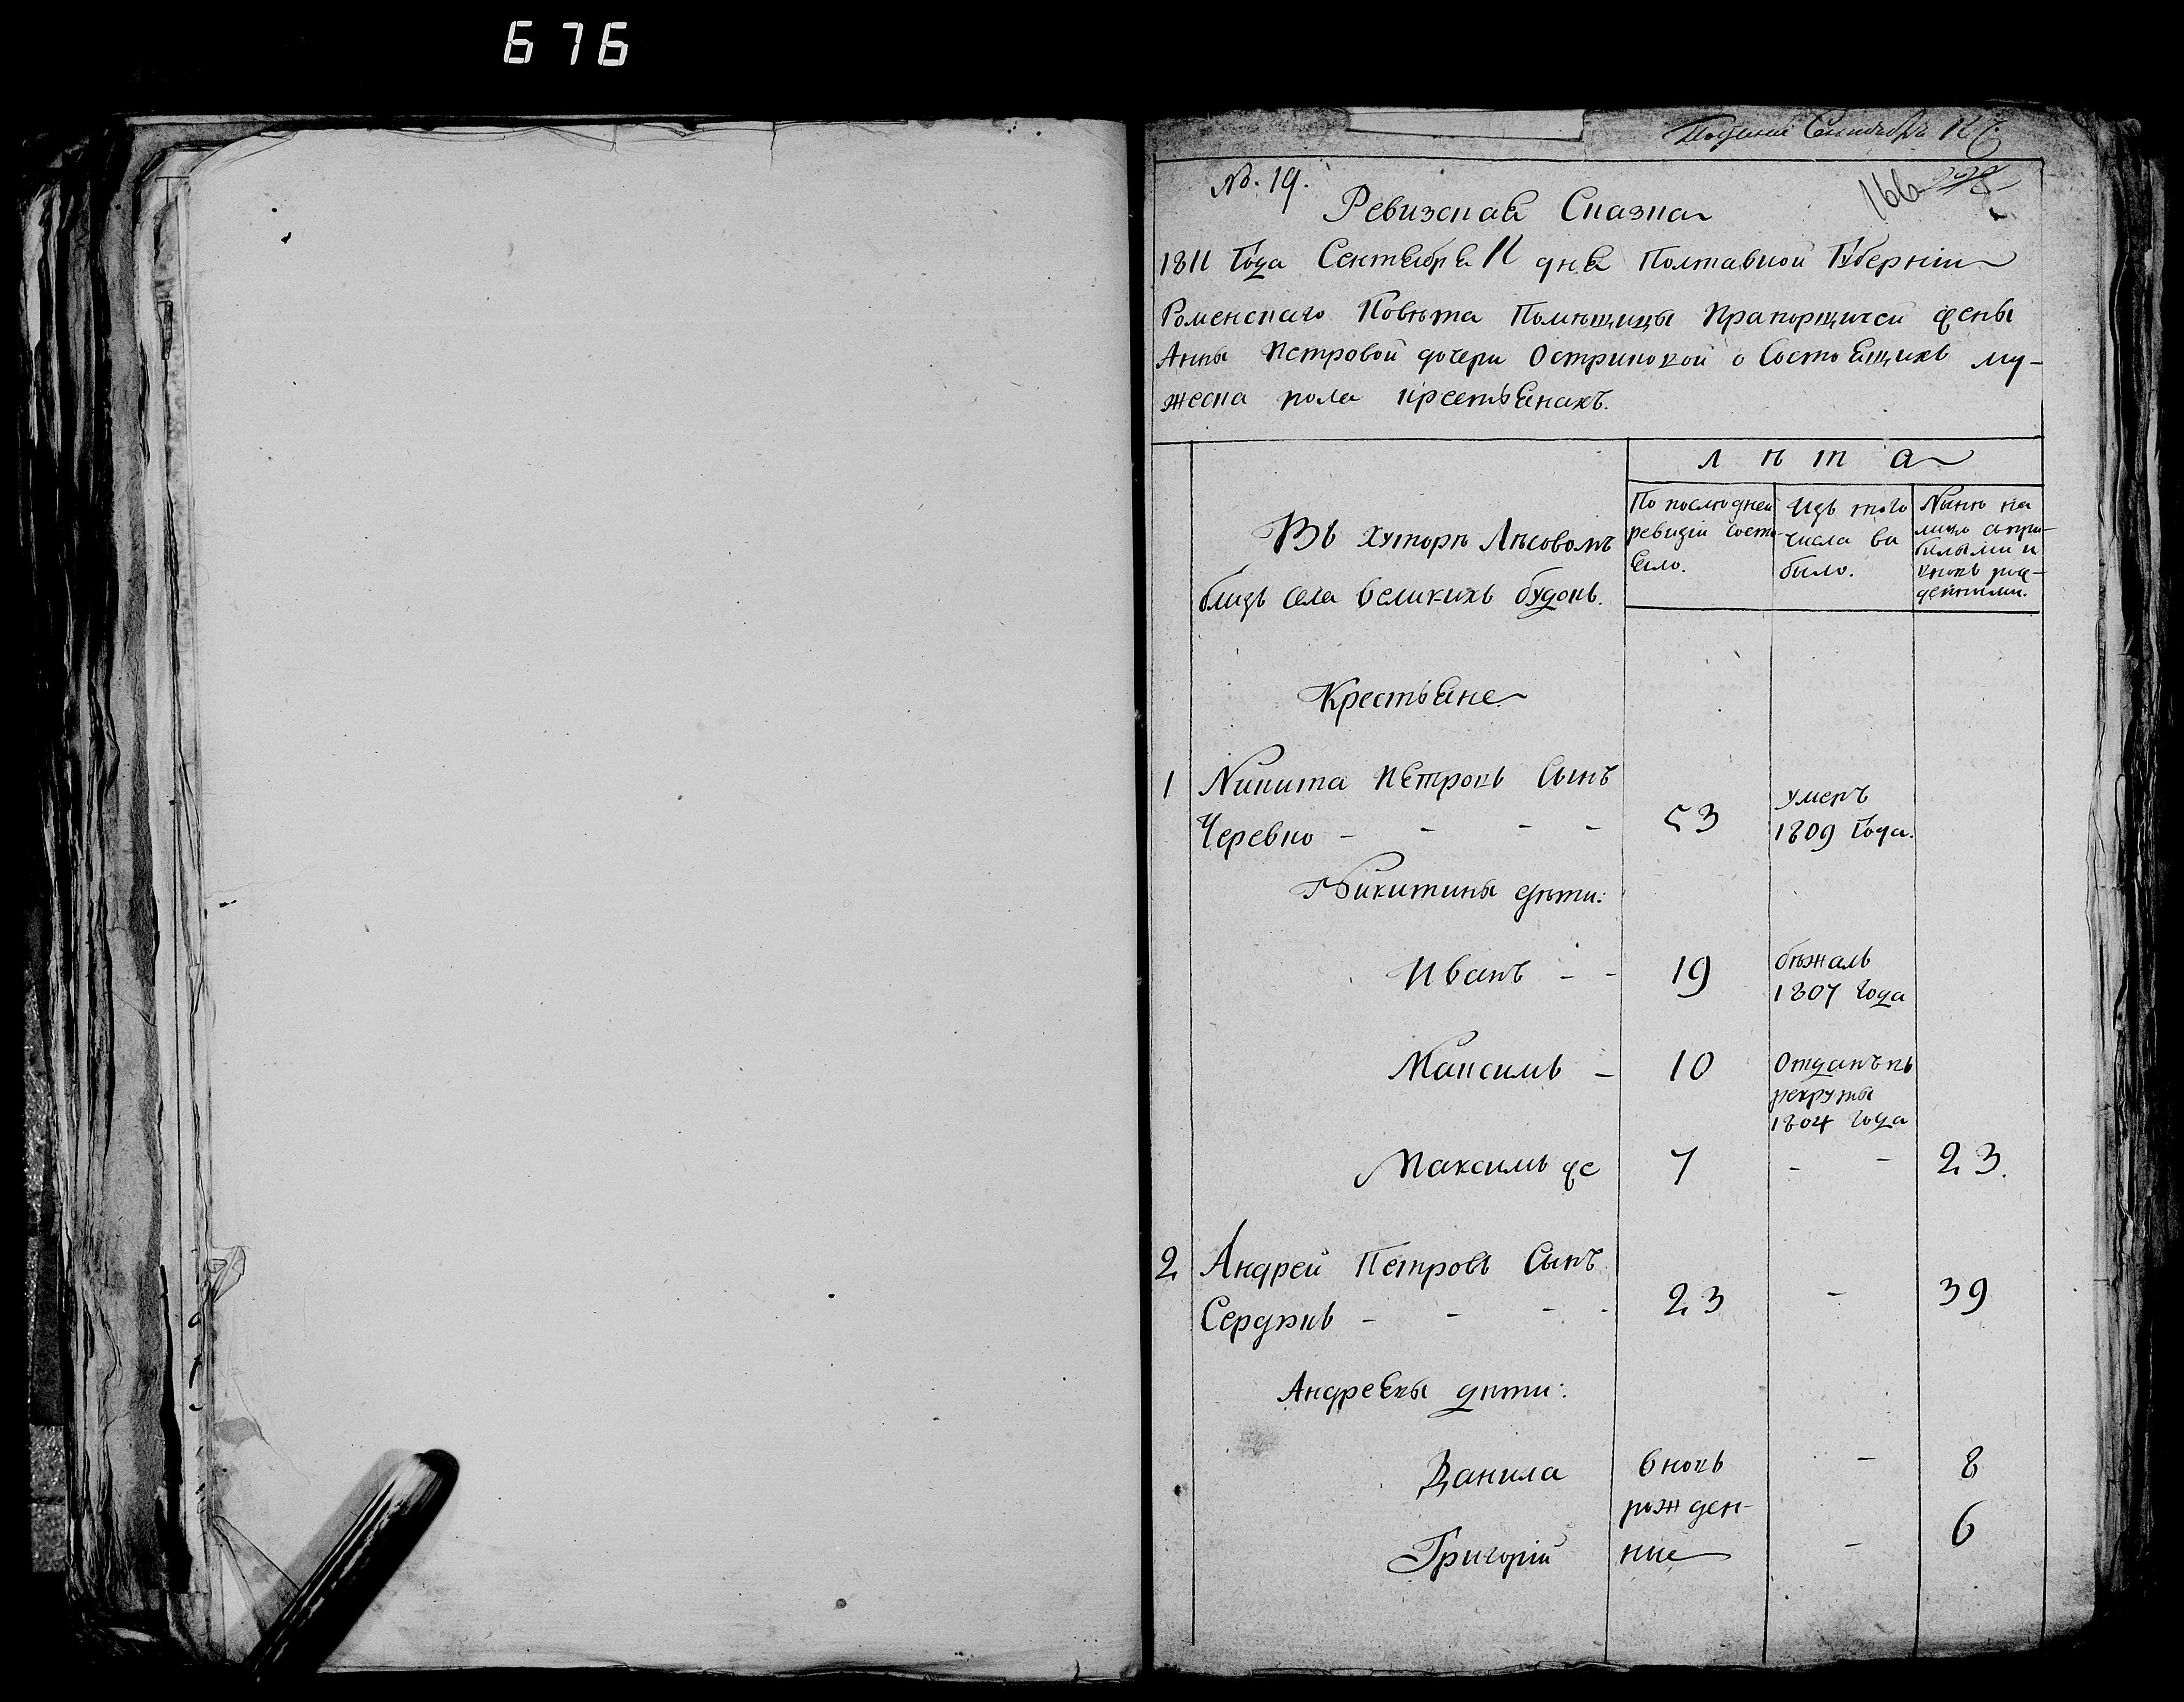 676
Сентября
No. 19.
166
Ревизская Сказка
1811 Года Сентября 11 дня Полтавской Губернии
Роменскаго Повѣта Помѣщицы Прапорщичей жены
Анны Петровой дочери о Состоящихъ му-
жеска пола крестьянахъ.
л ѣ т а
Въ Хуторѣ Лѣсовомъ
близъ села великихъ будокъ.
По послѣдней
ревизіи состо-
яло.
Изъ того
числа вы
было.
Нынѣ на
лицо съ при-
былыми и
вновь рож-
денными.
Крестьяне
1 Никита Петровъ Сынъ
Черевко - - - - 53 умеръ
1809 Года.
Никитины дѣти:
Иванъ - - 19 бѣжалъ
1807 года
Максимъ - 10 Отданъ въ
рекруты
1804 года
Максимъ же 7 - - 23.
2 Андрей Петровъ Сынъ
Сердюкъ - - - - 23 - 39
Андреевы дѣти:
Данила вновь - 8
рожден-
Григорій ние - 6